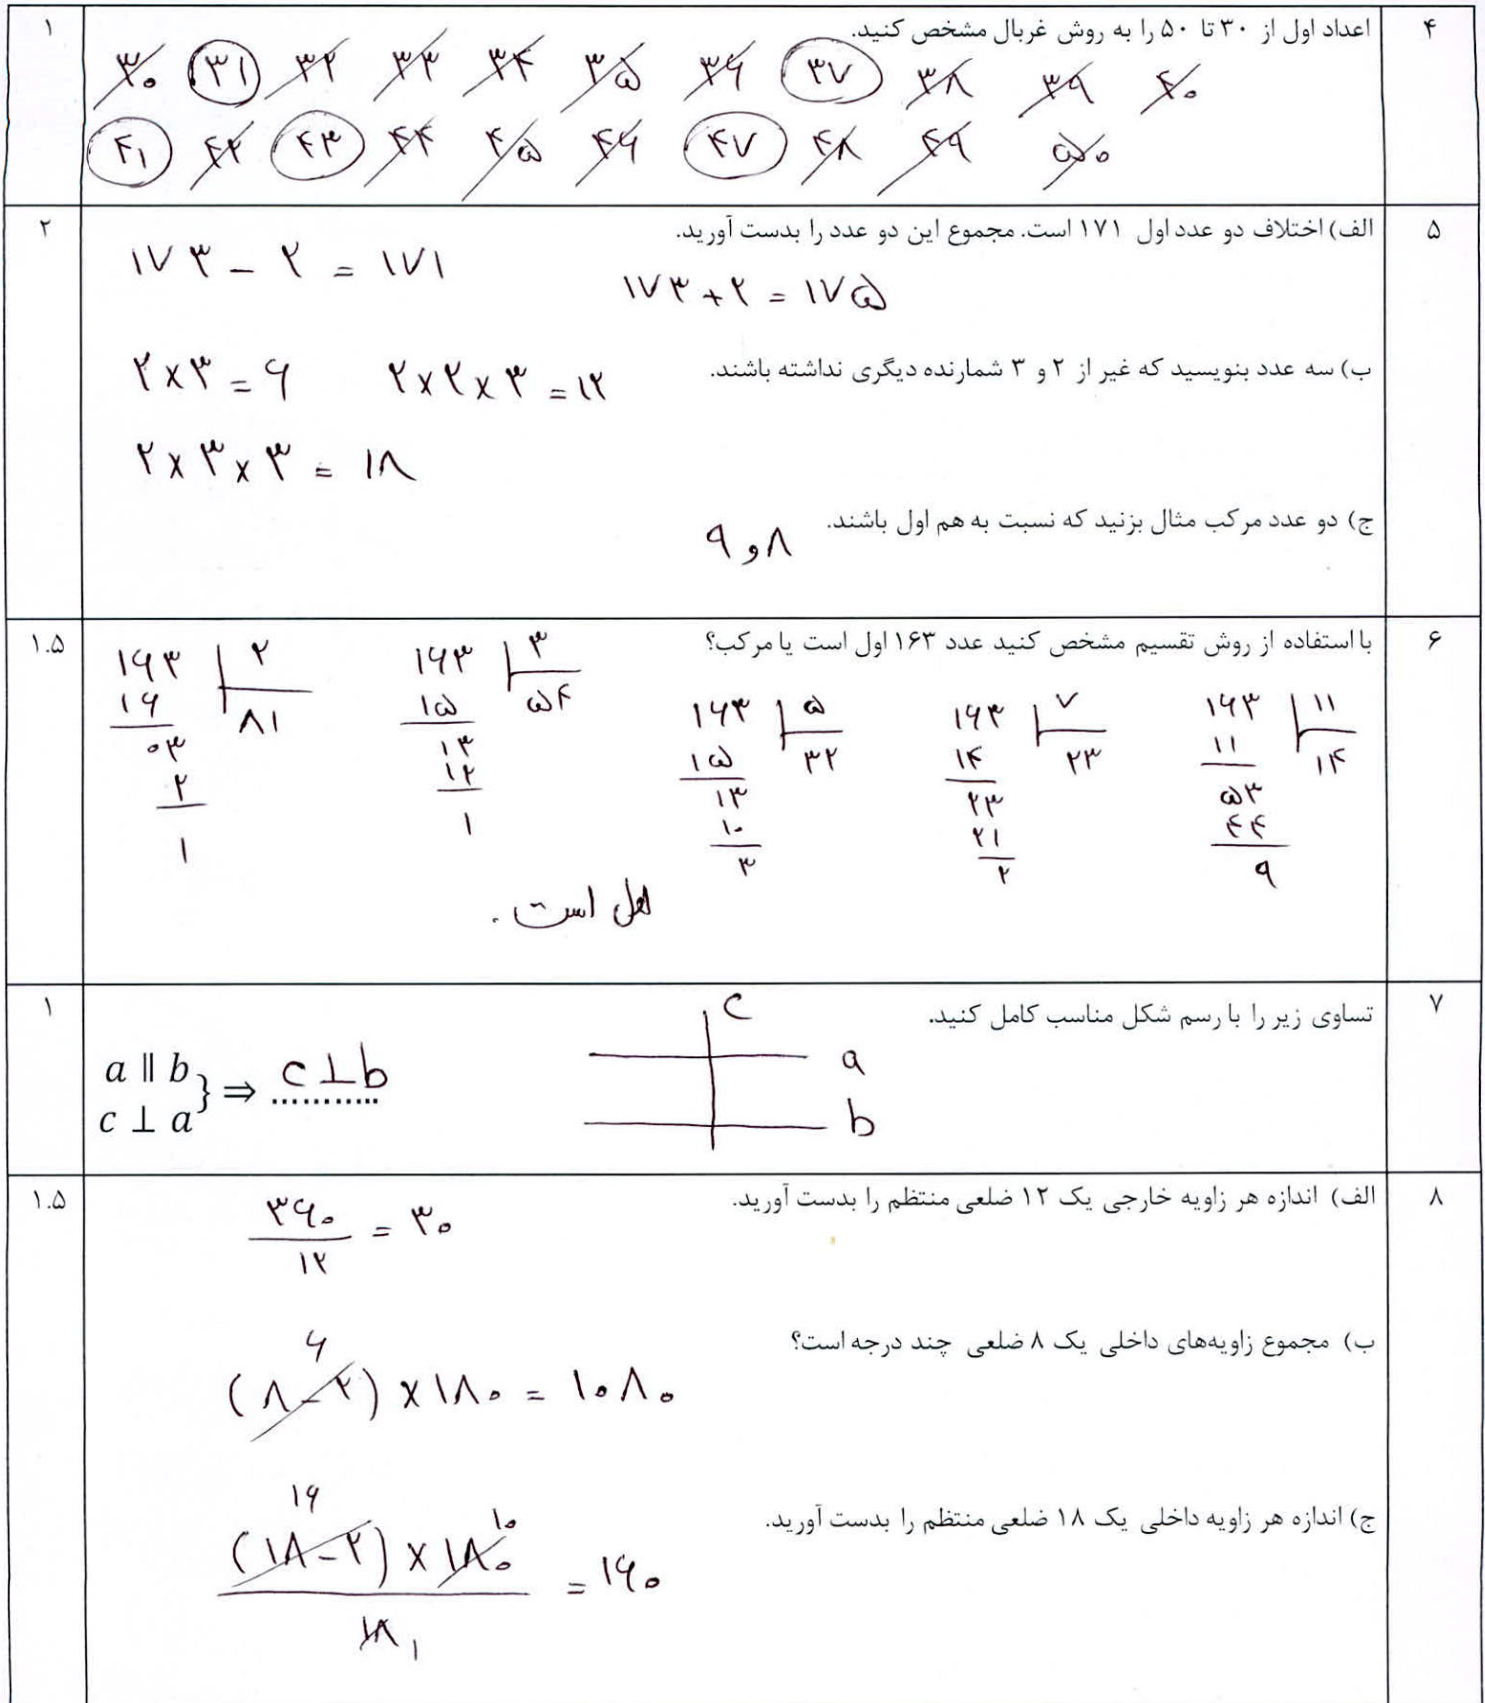 ۴ اعداد اول از ۳۰ تا ۵۰ را به روش غربال مشخص کنید. ۱
۳۰ ۳۱ ۳۲ ۳۳ ۳۴ ۳۵ ۳۶ ۳۷ ۳۸ ۳۹ ۴۰
۴۱ ۴۲ ۴۳ ۴۴ ۴۵ ۴۶ ۴۷ ۴۸ ۴۹ ۵۰
۵ الف) اختلاف دو عدد اول ۱۷۱ است. مجموع این دو عدد را بدست آورید. ۲
۱۷۳ - ۲ = ۱۷۱
۱۷۳ + ۲ = ۱۷۵
ب) سه عدد بنویسید که غیر از ۲ و ۳ شمارنده دیگری نداشته باشند.
۲ × ۳ = ۶ ۲ × ۲ × ۳ = ۱۲
۲ × ۳ × ۳ = ۱۸
ج) دو عدد مرکب مثال بزنید که نسبت به هم اول باشند.
۸ و ۹
۶ با استفاده از روش تقسیم مشخص کنید عدد ۱۶۳ اول است یا مرکب؟ ۱.۵
۱۶۳ ۲
۱۶ ۸۱
۰۳
۲
۱
۱۶۳ ۳
۱۵ ۵۴
۱۳
۱۲
۱
۱۶۳ ۵
۱۵ ۳۲
۱۳
۱۰
۳
۱۶۳ ۷
۱۴ ۲۳
۲۳
۲۱
۲
۱۶۳ ۱۱
۱۱ ۱۴
۵۳
۴۴
۹
اول است.
۷ تساوی زیر را با رسم شکل مناسب کامل کنید. ۱
a ∥ b
c ⊥ a } ⇒ c ⊥ b
c
a
b
۸ الف) اندازه هر زاویه خارجی یک ۱۲ ضلعی منتظم را بدست آورید. ۱.۵
۳۶۰ = ۳۰
۱۲
ب) مجموع زاویه‌های داخلی یک ۸ ضلعی چند درجه است؟
۶
(۸ - ۲) × ۱۸۰ = ۱۰۸۰
ج) اندازه هر زاویه داخلی یک ۱۸ ضلعی منتظم را بدست آورید.
۱۶ ۱۰
(۱۸ - ۲) × ۱۸۰ = ۱۶۰
۱۸ ۱